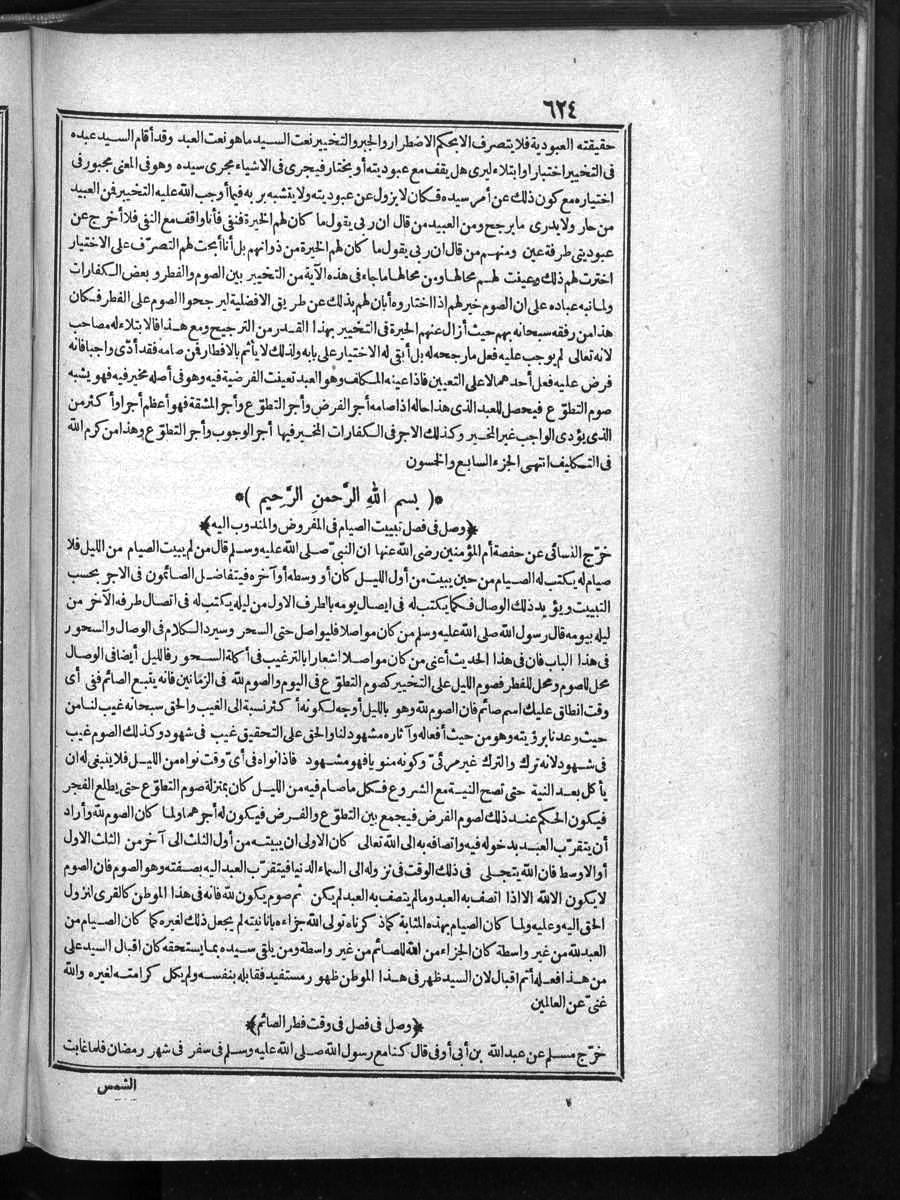 ٦٢٤
حقيقته العبودية فلا يتصرف الا بحكم الاضطرار والجبر والتخيير نعت السيد ما هو نعت العبد وقد أقام السيد عبده
فى التخيير اختبارا وابتلاء ليرى هل يقف مع عبوديته أو يختار فيجرى فى الاشياء مجرى سيده وهو فى المعنى مجبور فى
اختياره مع كون ذلك عن أمر سيده فكان لا يزول عن عبوديته ولا يتشبه بربه فيما أوجب الله عليه التخيير فمن العبيد
من حار ولا يدرى ما يرجح ومن العبيد من قال ان ربى يقول ما كان لهم الخيرة فنفى فأنا واقف مع النفى فلا أخرج عن
عبوديتى طرفة عين ومنهم من قال ان ربى يقول ما كان لهم الخيرة من ذواتهم بل أنا أبحت لهم التصرّف على الاختيار
اخترت لهم ذلك وعينت لهم محالها ومن محالها ما جاء فى هذه الآية من التخيير بين الصوم والفطر وبعض الكفارات
ولما نبه عباده على ان الصوم خير لهم اذا اختاروه أبان لهم بذلك عن طريق الافضلية ليرجحوا الصوم على الفطر فكان
هذا من رفقه سبحانه بهم حيث أزال عنهم الحيرة فى التخيير بهذا القدر من الترجيح ومع هذا فالابتلاء له مصاحب
لانه تعالى لم يوجب عليه فعل ما رجحه له بل أبقى له الاختيار على بابه ولذلك لا يأثم بالافطار فمن صامه فقد أدّى واجبا فانه
فرض عليه فعل أحدهما لا على التعيين فاذا عينه المكلف وهو العبد تعينت الفرضية فيه وهو فى أصله مخير فيه فهو يشبه
صوم التطوّع فيحصل للعبد الذى هذا حاله اذا صامه أجر الفرض وأجر التطوّع وأجر المشقة فهو أعظم أجرا وأكثر من
الذى يؤدى الواجب غير المخير وكذلك الاجر فى الكفارات المخير فيها أجر الوجوب وأجر التطوّع وهذا من كرم الله
فى التكليف انتهى الجزء السابع والخمسون
*( بسم الله الرَّحمنِ الرَّحِيم )*
﴿وصل فى فصل تبييت الصيام فى المفروض والمندوب اليه﴾
خرّج النسائى عن حفصة أم المؤمنين رضى الله عنها ان النبىّ صلى الله عليه وسلم قال من لم يبيت الصيام من الليل فلا
صيام له يكتب له الصيام من حين يبيت من أول الليل كان أو وسطه أو آخره فيتفاضل الصائمون فى الاجر بحسب
التبييت ويؤيد ذلك الوصال فكما يكتب له فى ايصال يومه بالطرف الاول من ليله يكتب له فى اتصال طرفه الآخر من
ليله بيومه قال رسول الله صلى الله عليه وسلم من كان مواصلا فليواصل حتى السحر وسيرد الكلام فى الوصال والسحور
فى هذا الباب فان فى هذا الحديث أعنى من كان مواصلا اشعارا بالترغيب فى أكلة السحور فالليل أيضا فى الوصال
محل للصوم ومحل للفطر فصوم الليل على التخيير كصوم التطوّع فى اليوم والصوم لله فى الزمانين فانه يتبع الصائم ففى أى
وقت انطلق عليك اسم صائم فان الصوم لله وهو بالليل أوجه لكونه أكثر نسبة الى الغيب والحق سبحانه غيب لنا من
حيث وعدنا برؤيته وهو من حيث أفعاله وآثاره مشهود لنا والحق على التحقيق غيب فى شهود وكذلك الصوم غيب
فى شهود لانه ترك والترك غير مرئىّ وكونه منويا فهو مشهود فاذا نواه فى أىّ وقت نواه من الليل فلا ينبغى له ان
يأكل بعد النية حتى تصح النية مع الشروع فكل ما صام فيه من الليل كان بمنزلة صوم التطوّع حتى يطلع الفجر
فيكون الحكم عند ذلك لصوم الفرض فيجمع بين التطوّع والفرض فيكون له أجرهما ولما كان الصوم لله وأراد
أن يتقرّب العبد بدخوله فيه واتصافه به الى الله تعالى كان الاولى ان يبيته من أول الثلث الى آخر من الثلث الاول
أو الاوسط فان الله يتجلى فى ذلك الوقت فى نزوله الى السماء الدنيا فيتقرّب العبد اليه بصفته وهو الصوم فان الصوم
لا يكون الا لله الا اذا اتصف به العبد وما لم يتصف به العبد لم يكن ثم صوم يكون لله فانه فى هذا الموطن كالقرى لنزول
الحق اليه وعليه ولما كان الصيام بهذه المثابة كما ذكرناه تولى الله جزاءه بانانيته لم يجعل ذلك لغيره كما كان الصيام من
العبد لله من غير واسطة كان الجزاء من الله للصائم من غير واسطة ومن يلقى سيده بما يستحقه كان اقبال السيد على
من هذا فعله أتم اقبال لان السيد ظهر فى هذا الموطن ظهور مستفيد فقابله بنفسه ولم يكل كرامته لغيره والله
غنىّ عن العالمين
﴿وصل فى فصل فى وقت فطر الصائم﴾
خرّج مسلم عن عبد الله بن أبى أوفى قال كنا مع رسول الله صلى الله عليه وسلم فى سفر فى شهر رمضان فلما غابت
الشمس